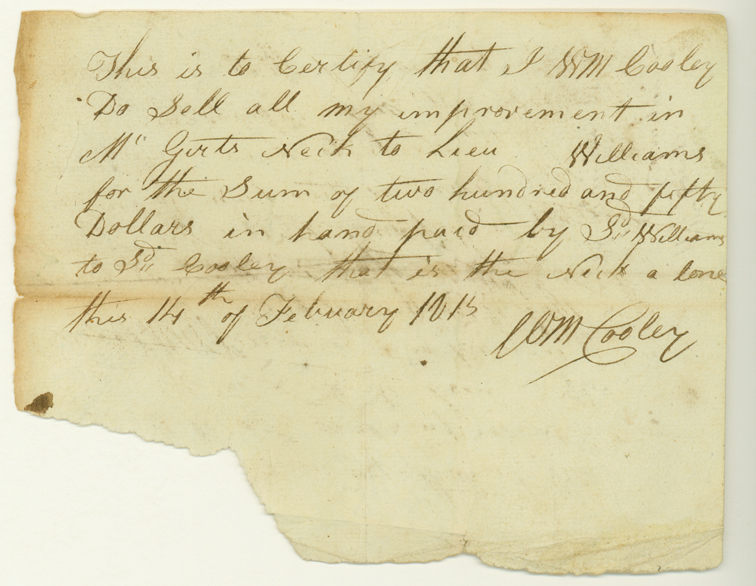 This is to Certify that I WM Cooley
Do Sell all my improvement in
Mc Girts Neck to Lieu Williams
for the Sum of two hundred and fifty
Dollars in hand paid by Sd. Williams
to Sd. Cooley that is the Neck a lone
this 14th of February 1815
WM Cooley